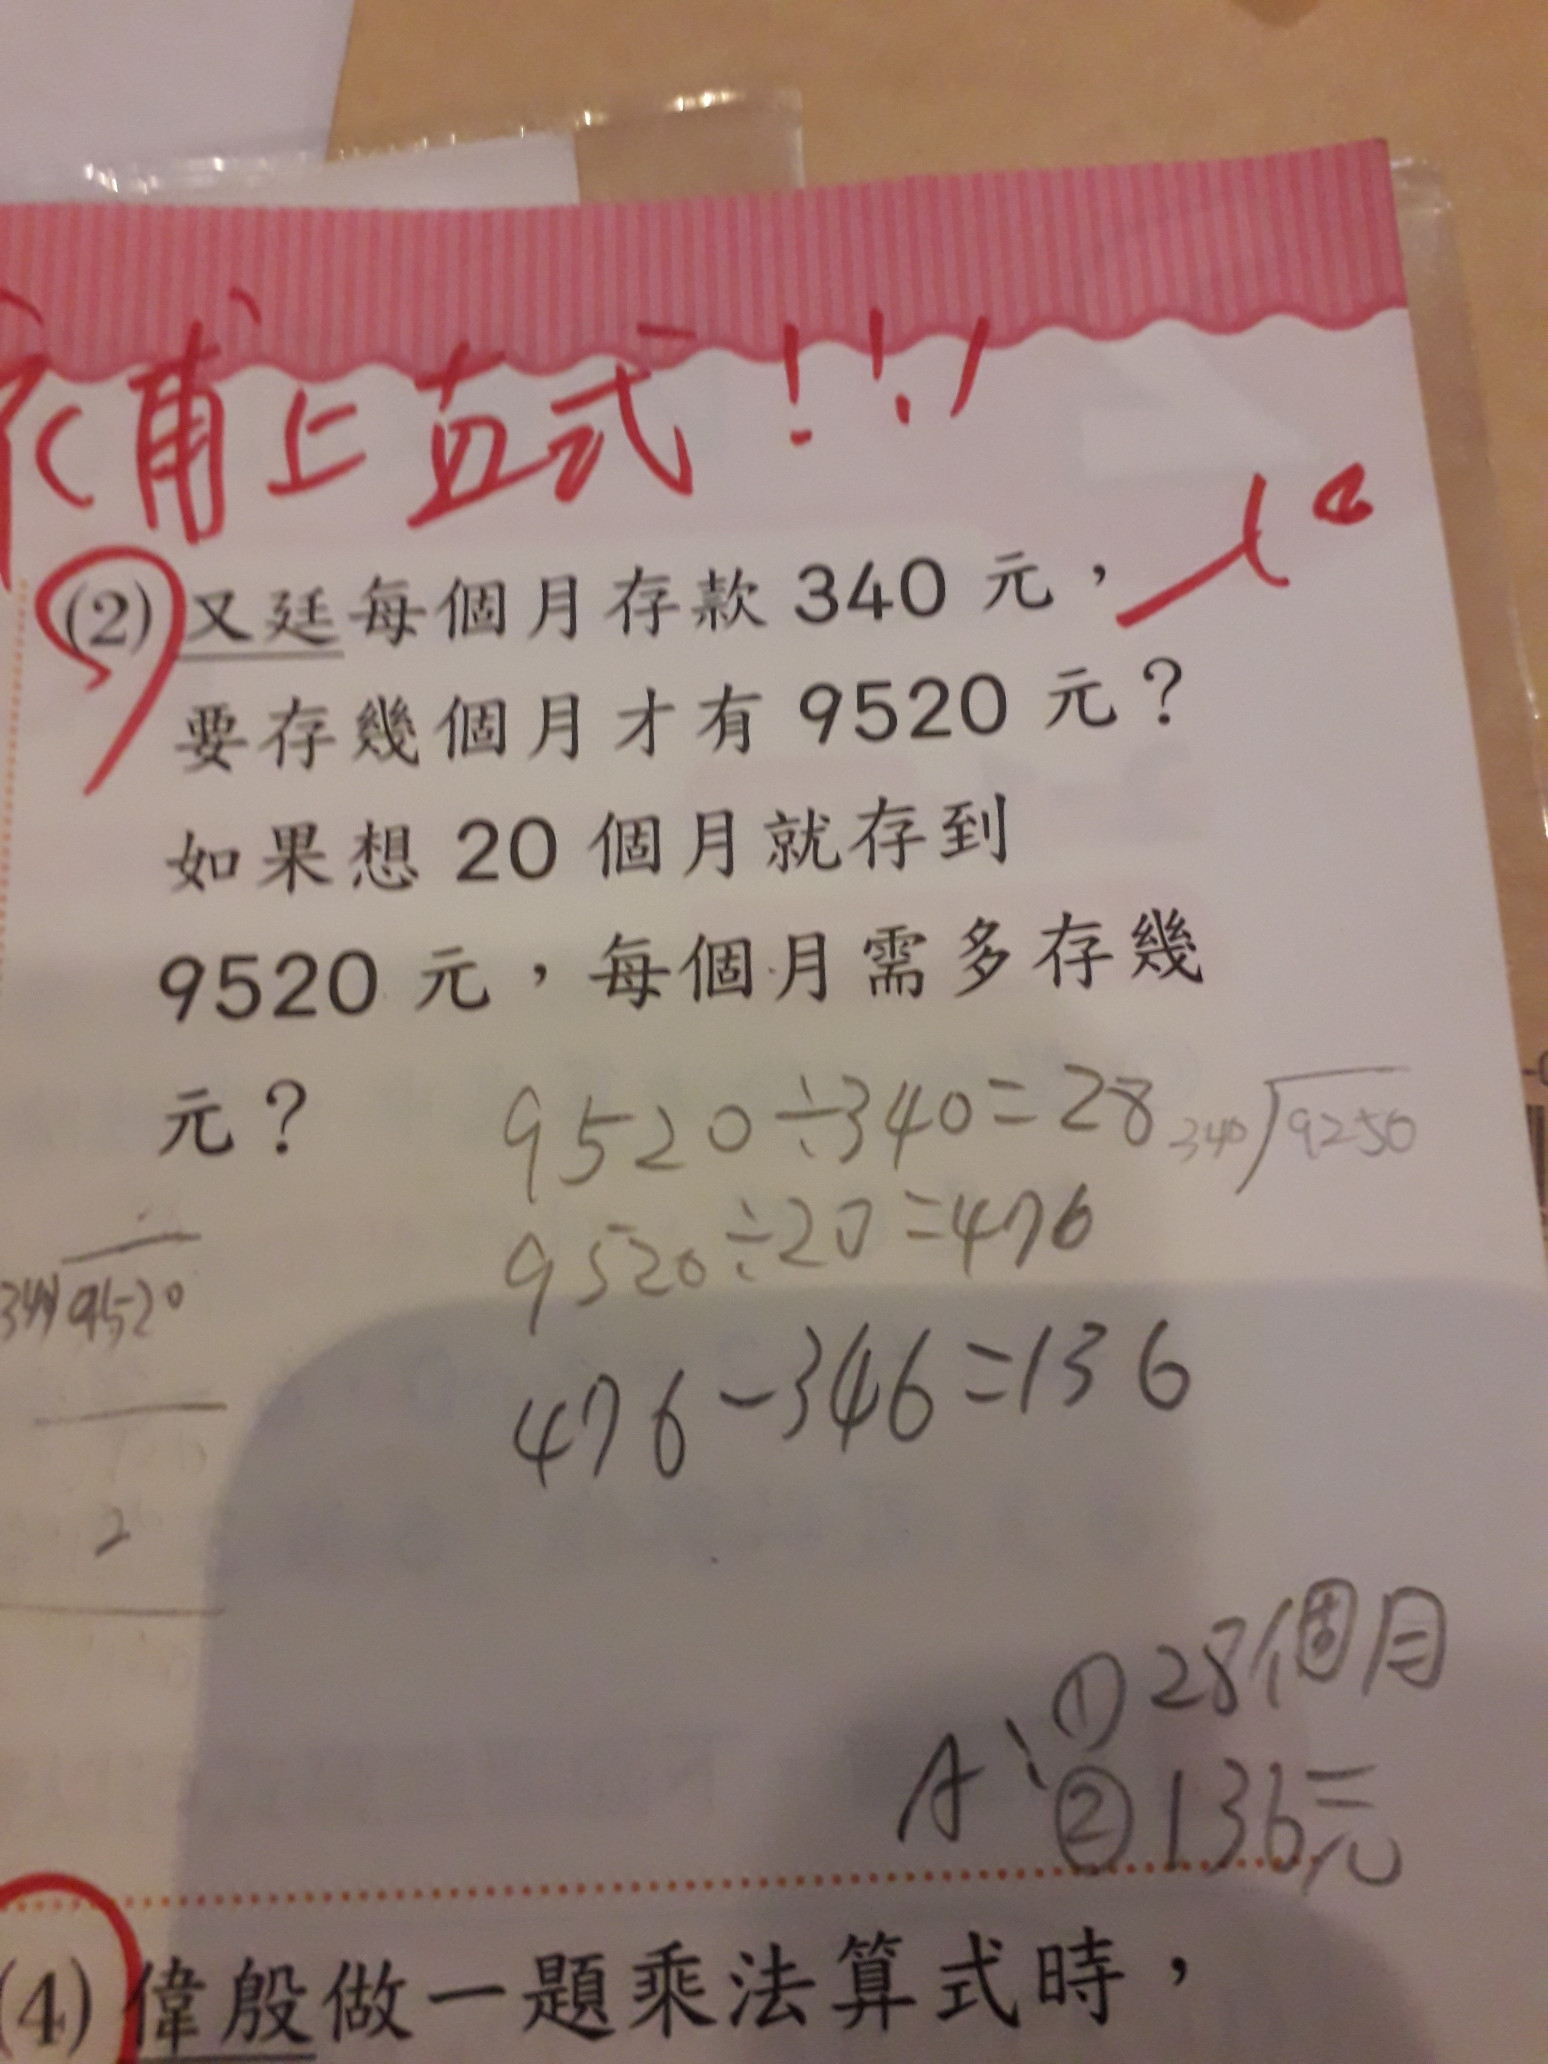 補上直式!!!
(2) 又廷每個月存款 340 元，
要存幾個月才有 9520 元？
如果想 20 個月就存到
9520 元，每個月需多存幾
元？
9520÷340=28
340 9250
9520÷20=476
340 9520
476-346=136
2
A: ① 28個月
② 136元
(4) 偉殷做一題乘法算式時，